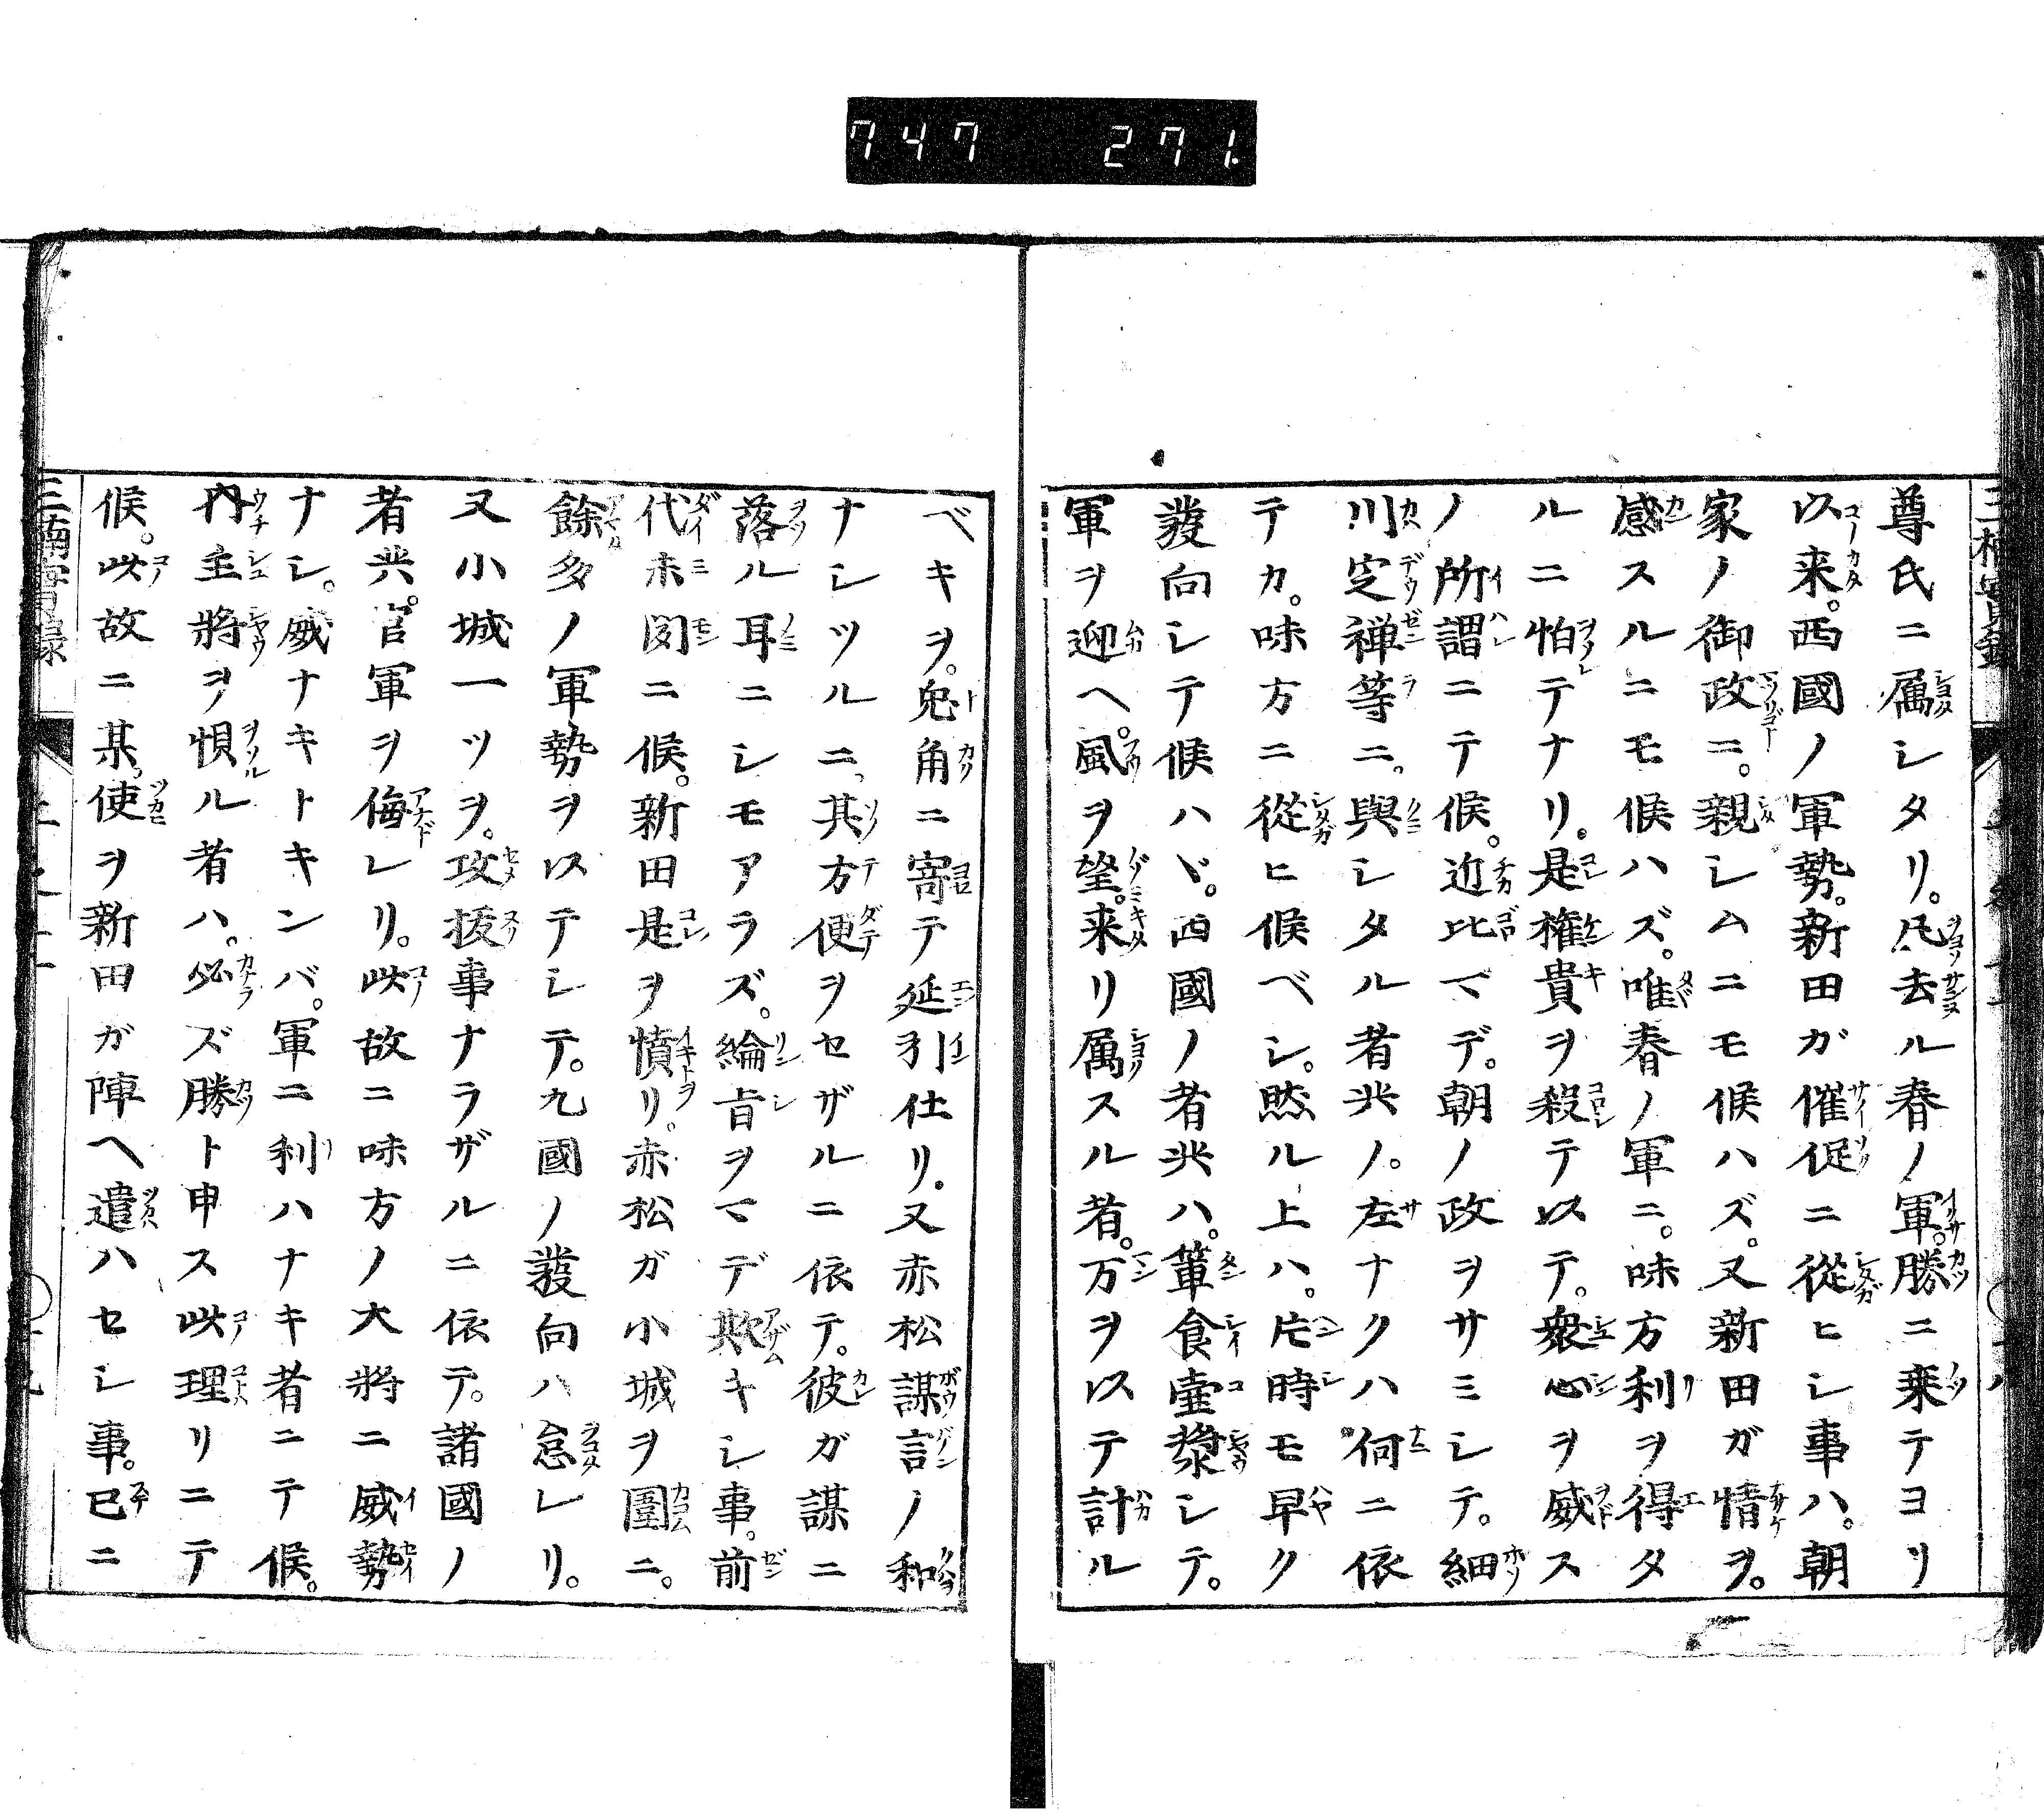 747 271.
尊氏ニ属シタリ。凡去ル春ノ軍。勝ニ乗テヨリ
以来。西國ノ軍勢。新田ガ催促ニ從ヒシ事ハ。朝
家ノ御政ニ。親シムニモ候ハズ。又新田ガ情ヲ。
感スルニモ候ハズ。唯春ノ軍ニ。味方利ヲ得タ
ルニ怕テナリ。是權貴ヲ殺テ以テ。衆心ヲ威ス
ノ所謂ニテ候。近比マデ。朝ノ政ヲサミシテ。細
川定禅等ニ。與シタル者共ノ。左ナクハ何ニ依
テカ。味方ニ從ヒ候ベシ。然ル上ハ。片時モ早ク
發向シテ候ハヾ。西國ノ者共ハ。簞食壷漿シテ。
軍ヲ迎ヘ。風ヲ望。来リ属スル者。万ヲ以テ計ル
ベキヲ。兎角ニ寄テ延引仕リ。又赤松謀言ノ和
ナシツルニ。其方便ヲセザルニ依テ。彼ガ謀ニ
落ル耳ニシモアラズ。綸旨ヲマデ欺キシ事。前
代未聞ニ候。新田是ヲ憤リ。赤松ガ小城ヲ圍ニ。
餘多ノ軍勢ヲ以テシテ。九國ノ發向ハ怠レリ。
又小城一ツヲ。攻拔事ナラザルニ依テ。諸國ノ
者共。官軍ヲ侮レリ。此故ニ味方ノ大將ニ威勢
ナシ。威ナキトキンバ。軍ニ利ハナキ者ニテ候。
内主將ヲ惧ル者ハ。必ズ勝ト申ス此理リニテ
候。此故ニ某。使ヲ新田ガ陣ヘ遣ハセシ事。已ニ